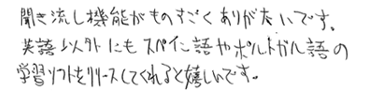 聞き流し機能がものすごくありがたいです。
英語以外にもスペイン語やポルトガル語の
学習ソフトをリリースしてくれると嬉しいです。